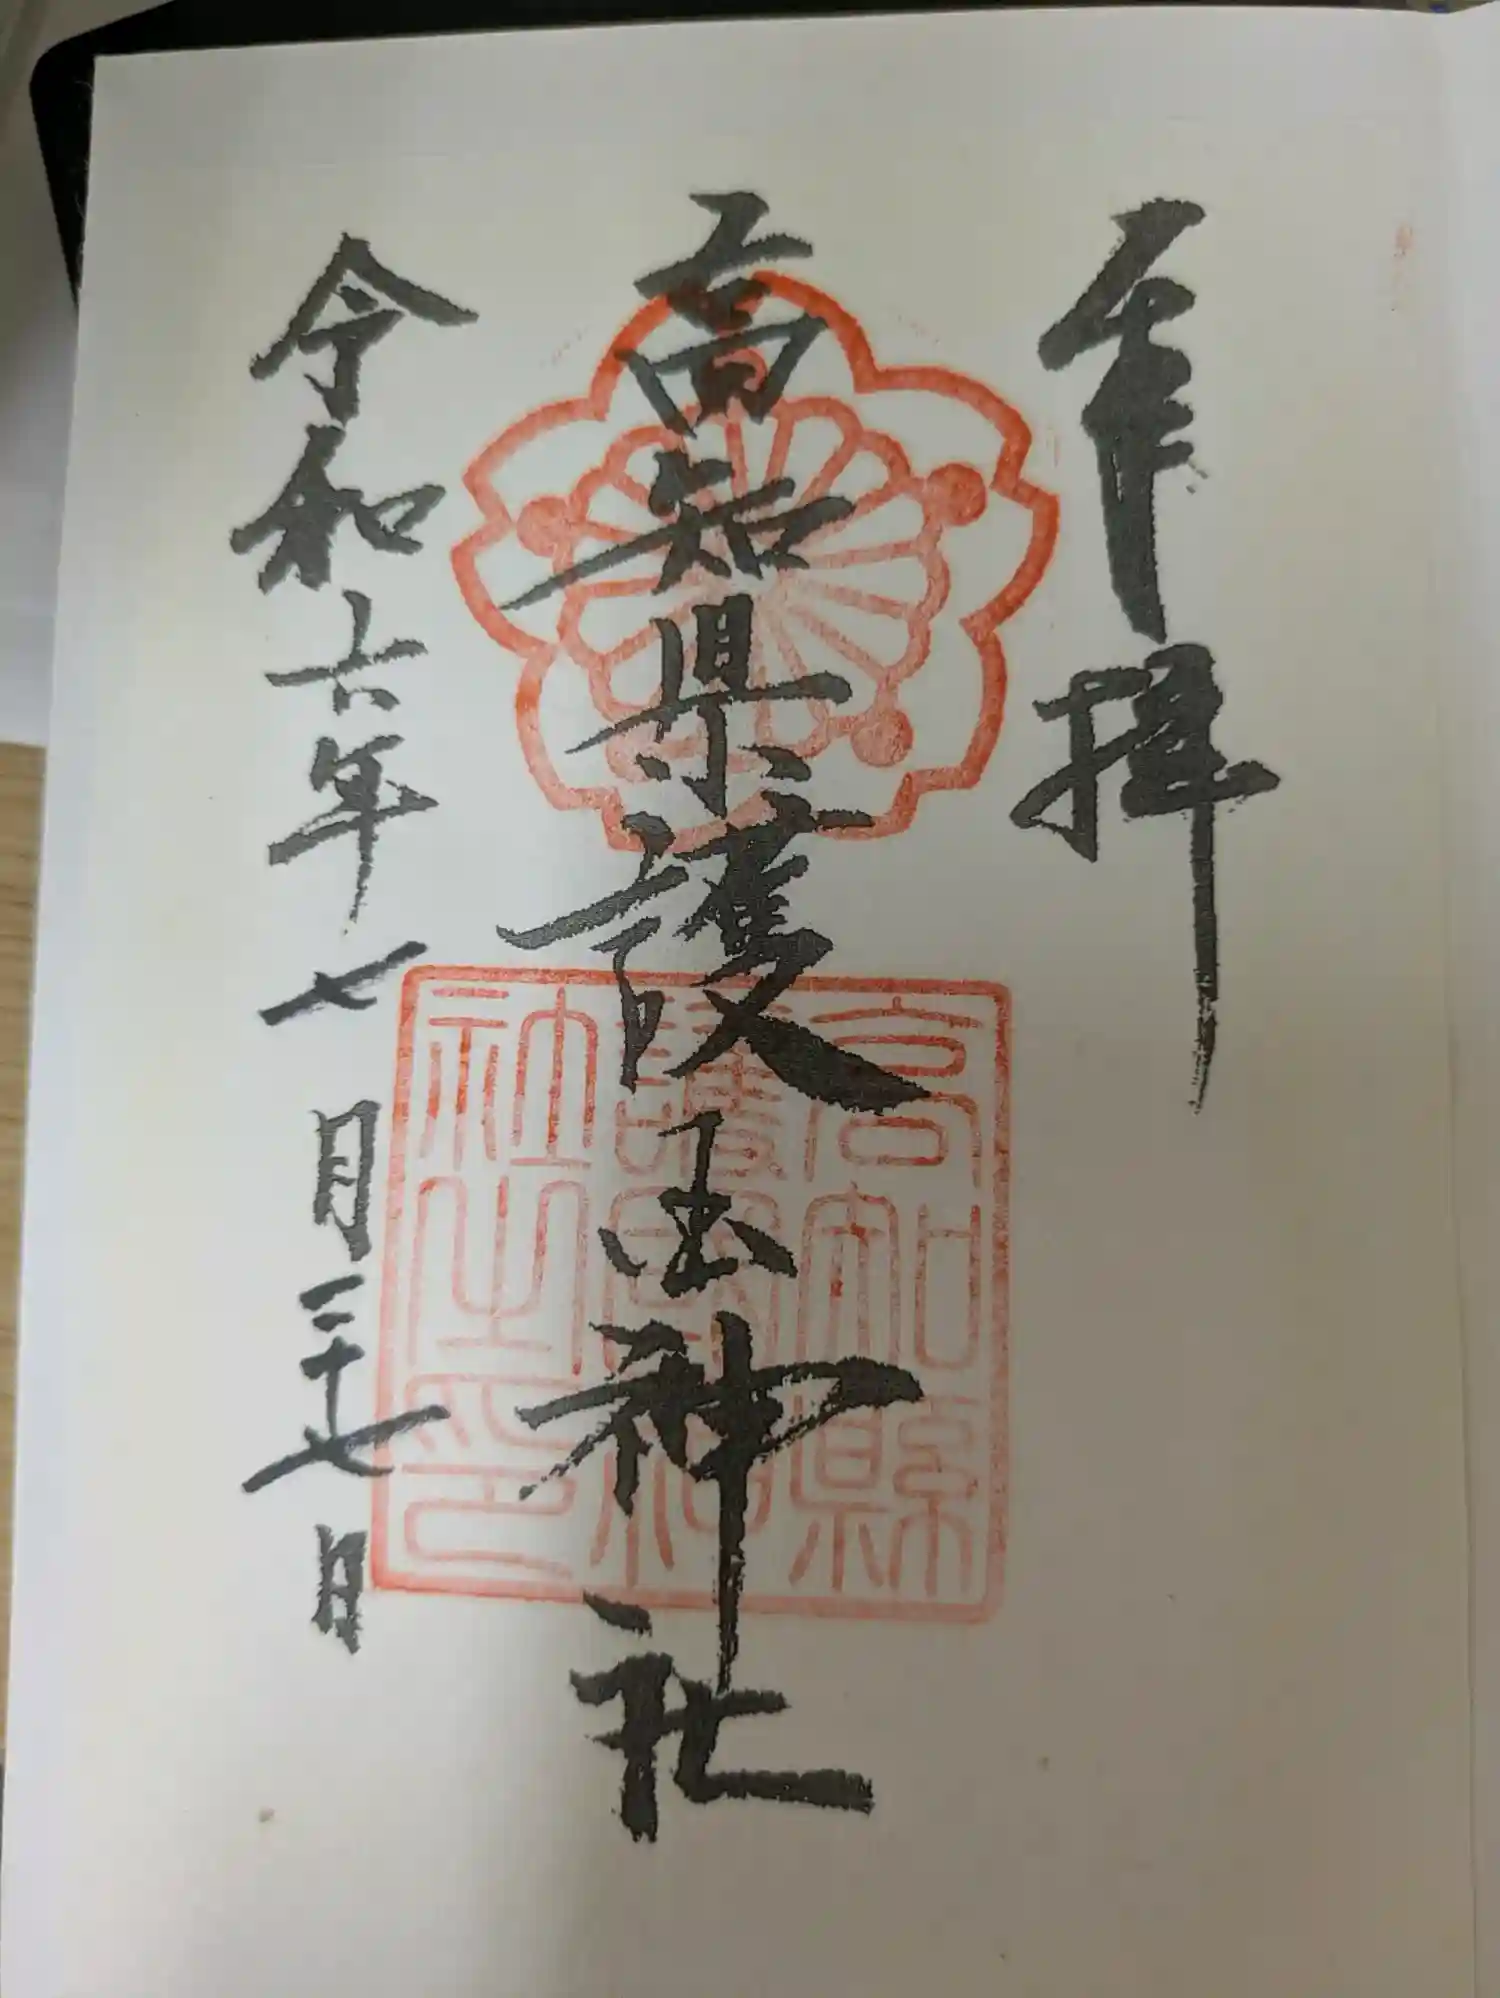 奉拝
高知県護国神社
令和六年七月二十七日
高知縣
護國神
社之印